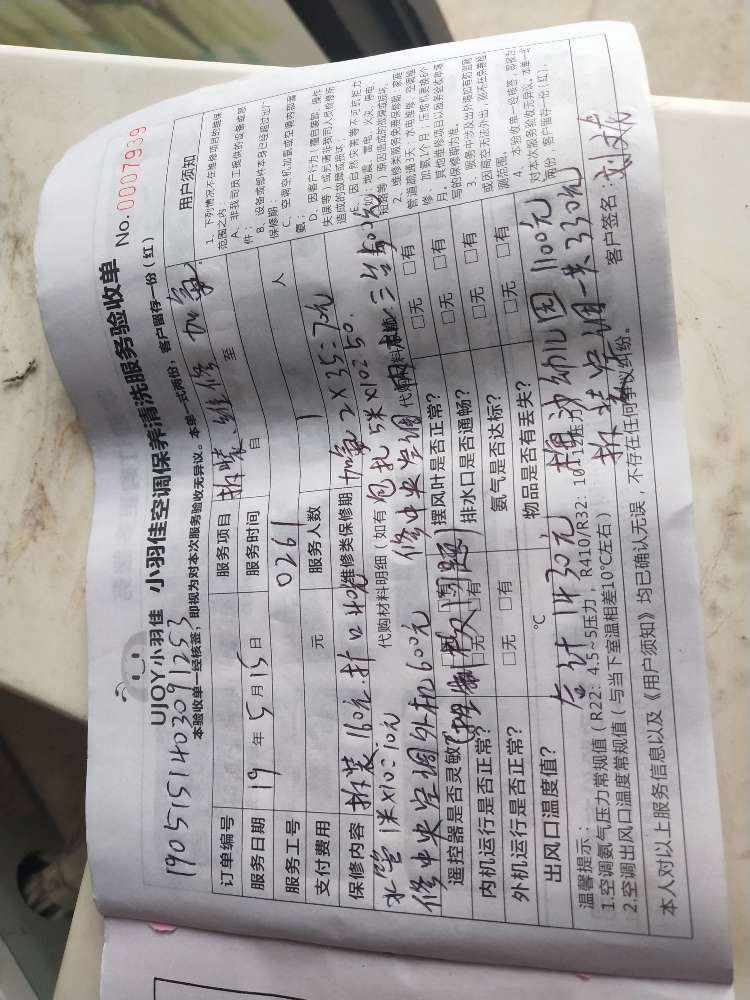 UJOY小羽佳 小羽佳空调保养清洗服务验收单 No.0007939
190515140309 1253
本验收单一经核签，即视为对本次服务验收无异议。本单一式两份，客户留存一份（红）
订单编号 服务项目 拆装 维修 加氟
服务日期 19 年 5 月 15 日 服务时间 自 至
服务工号 0261 服务人数 1 人
支付费用 元
保修内容 拆装160元 打口40元 维修类保修期 加氟2×35=70元
代购材料明细（如有 包扎 5米×10=50
水管1米×10=10元
修中央空调外机600元 修中央空调
遥控器是否灵敏 摆风叶是否正常？ □无 □有
内机运行是否正常？ □无 □有 排水口是否通畅？ □无 □有
外机运行是否正常？ □无 □有 氨气是否达标？ □无 □有
出风口温度值？ ℃ 物品是否有丢失？ □无 □有
合计1430元 幼儿园1100元
拆装空调一共330元
温馨提示：
1.空调氨气压力常规值（R22：4.5~5压力，R410/R32：10-12压力）
2.空调出风口温度常规值（与当下室温相差10℃左右）
本人对以上服务信息以及《用户须知》均已确认无误，不存在任何争议纠纷。 客户签名：
用户须知
1、下列情况不在维修项目的维保范围之内
A、非我司员工提供的设备或部件；
B、设备或部件本身已经超过出厂保修期；
C、空调空机加氨或空调内部漏氨；
D、因客户行为（擅自装卸、操作失误等）或另请非我司人员检修所造成的故障或损坏；
E、因自然灾害等不可抗拒力（如：地震、雷电、火灾、停电、短路等）原因造成的故障或损坏。
2、维修类服务免费保修期：家庭管道疏通3天、水电维修、空调维修、加氨1个月；压缩机更换6个月。其他维修项目以服务验收单填写的保修期为准。
4、本验收单一经核签，即视为对本次服务验收无异议。本单一式两份，客户留存一份（红）。